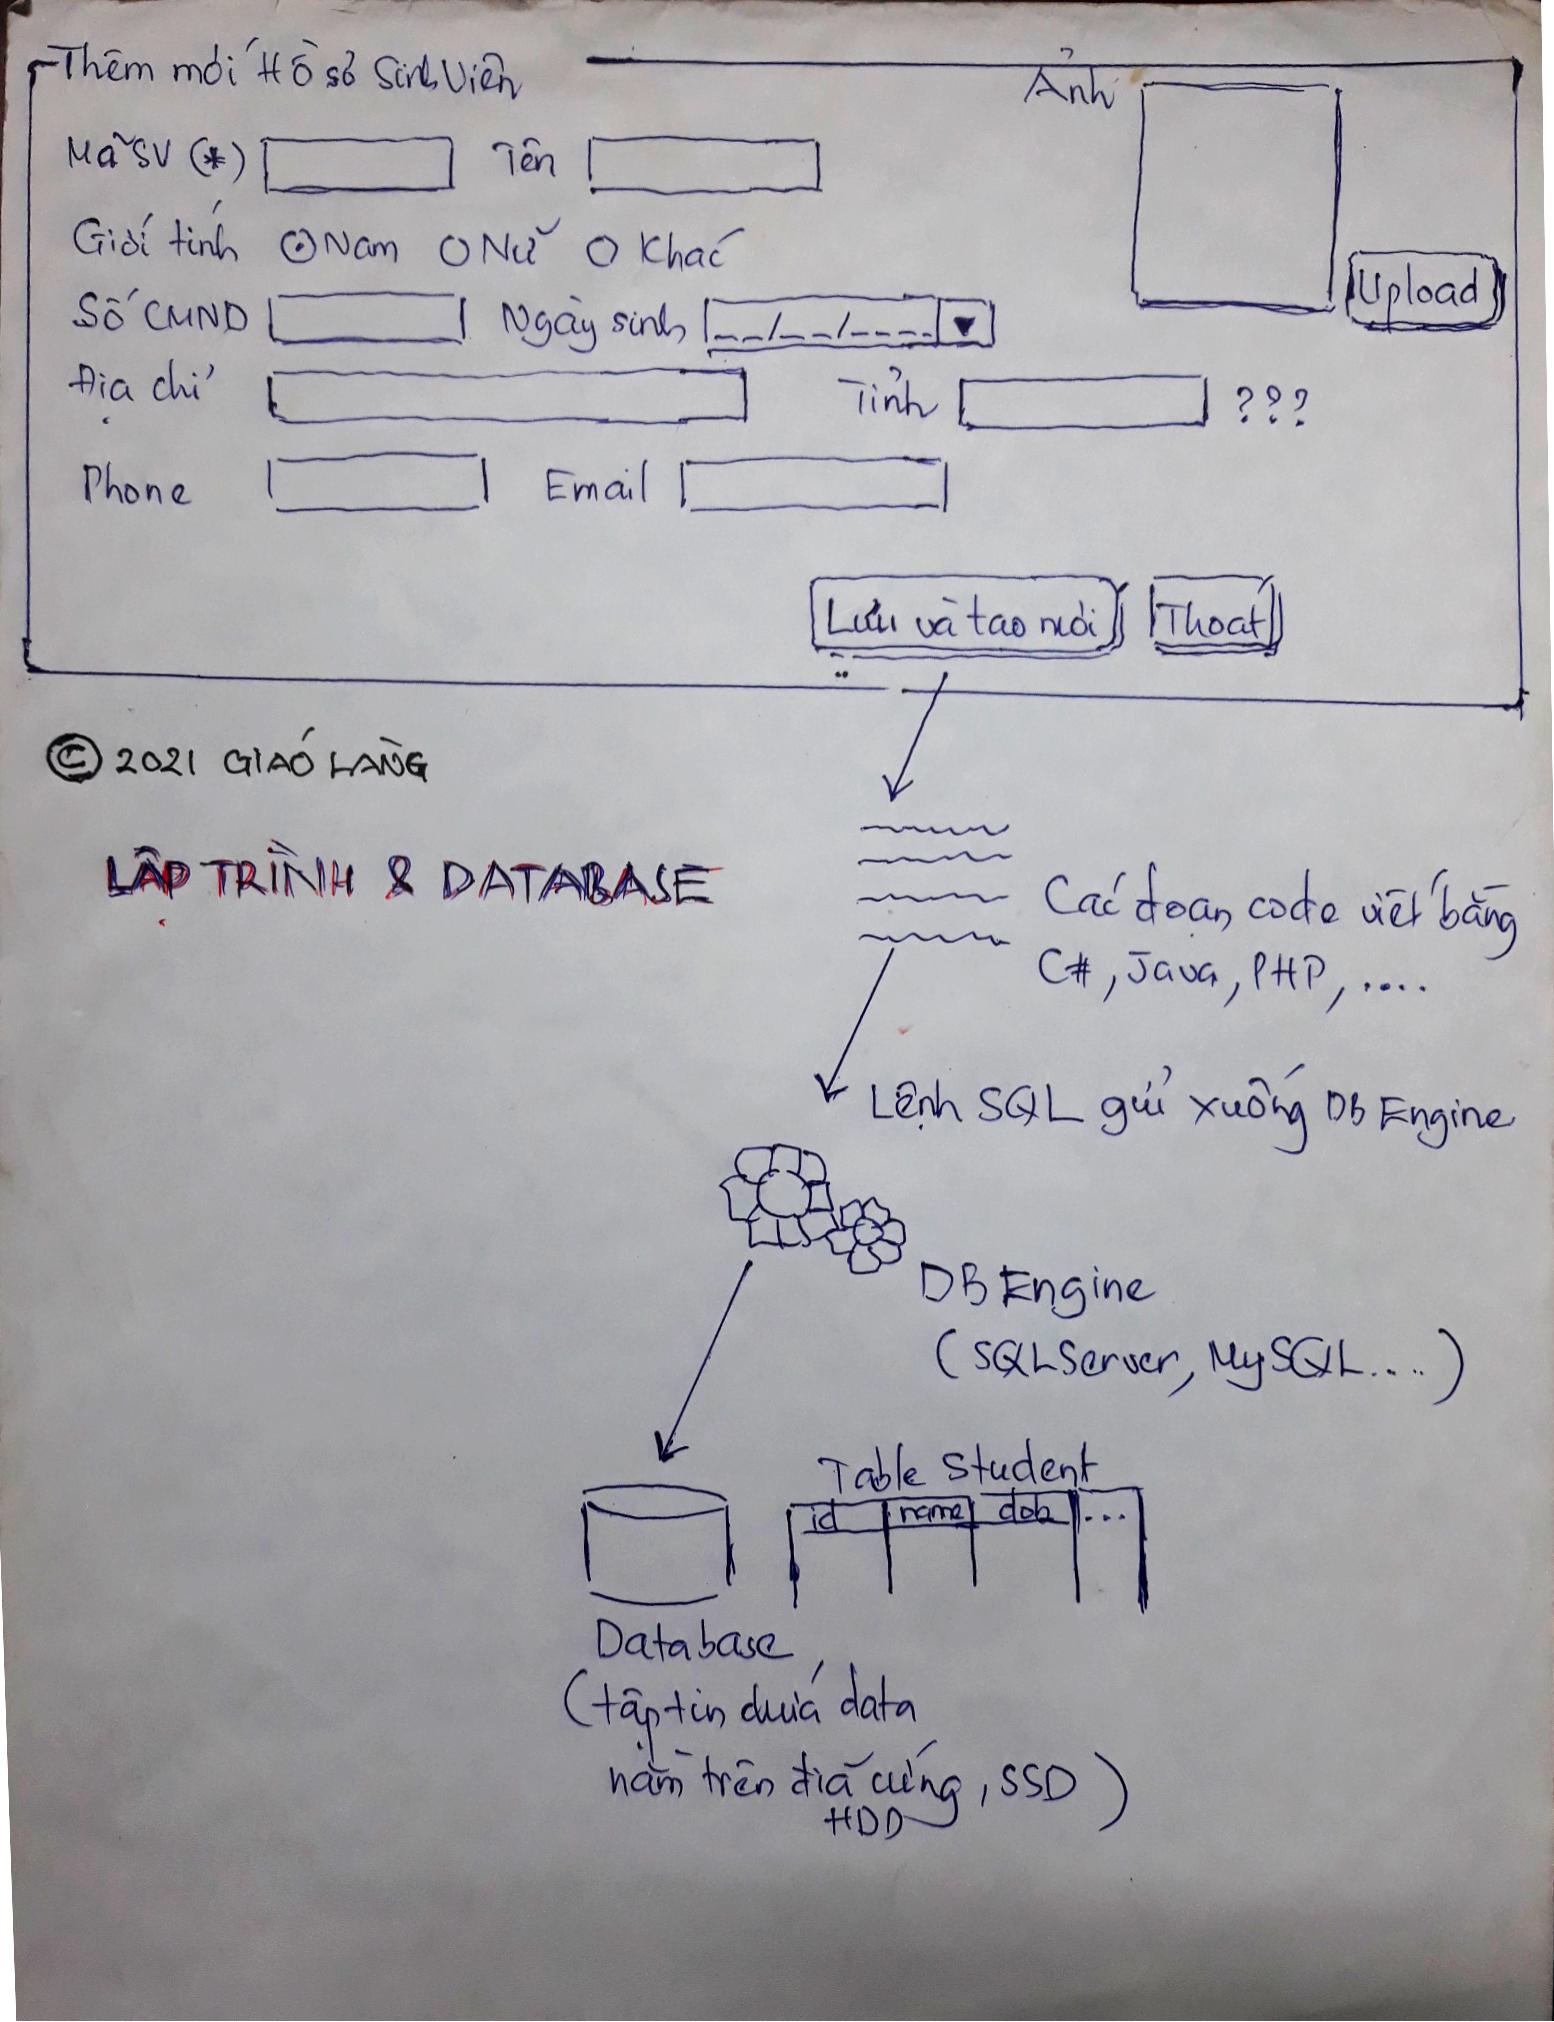 Thêm mới Hồ sơ Sinh Viên
Ảnh
Mã SV (*) Tên
Giới tính Nam Nữ Khác
Upload
Số CMND Ngày sinh __/__/____
Địa chỉ Tỉnh ???
Phone Email
Lưu và tạo mới Thoát
© 2021 GIÁO LÀNG
LẬP TRÌNH & DATABASE
Các đoạn code viết bằng
C#, Java, PHP, ....
Lệnh SQL gửi xuống DB Engine
DB Engine
(SQL Server, MySQL....)
Table Student
id name dob ...
Database
(tập tin chứa data
nằm trên đĩa cứng, SSD)
HDD